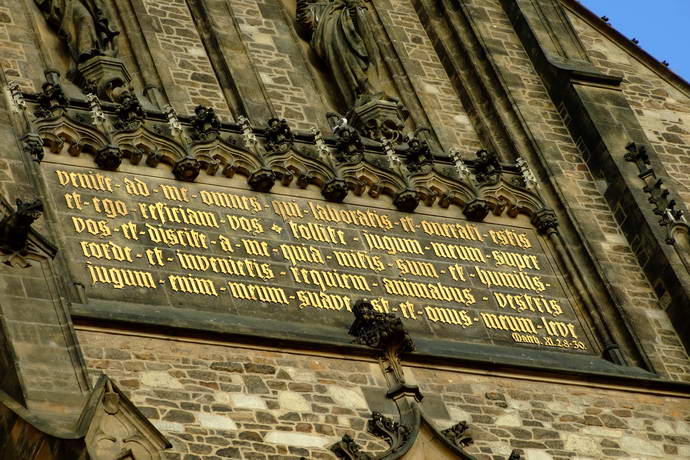 venite - ad - me - omnes - qui - laboratis - et - onerati - estis
et - ego - reficiam - vos - tollite - jugum - meum - super
vos - et - discite - a - me - quia - mitis - sum - et - humilis -
corde - et - invenietis - requiem - animabus - vestris -
jugum - enim - meum - suave - est - et - onus - meum - leve
(Matth. XI. 28-30.